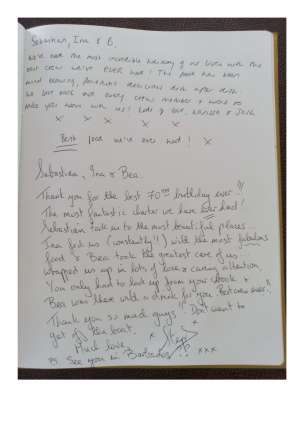 Sebastian, Ina & B,
We've had the most incredible holiday of our lives with the
best crew we've EVER had! The food has been
mind blowing, fantastic delicious dish after dish
We love each and every crew member & want to
take you home with us! Love &
x x x x
Best food we've ever had! x
Sebastian, Ina & Bea,
Thank you for the best 70th birthday ever!!
The most fantastic charter we have ever had!
Sebastian took us to the most beautiful places
Ina fed us (constantly!!) with the most fabulous
food & Bea took the greatest care of us
wrapped us up in lots of love & caring attention.
You only had to look up from your book &
Bea was there with a drink for you. Best crew ever!!
Thank you so much guys! Don't want to
get off the boat.
Much love
PS. See you in Barbados! xxx